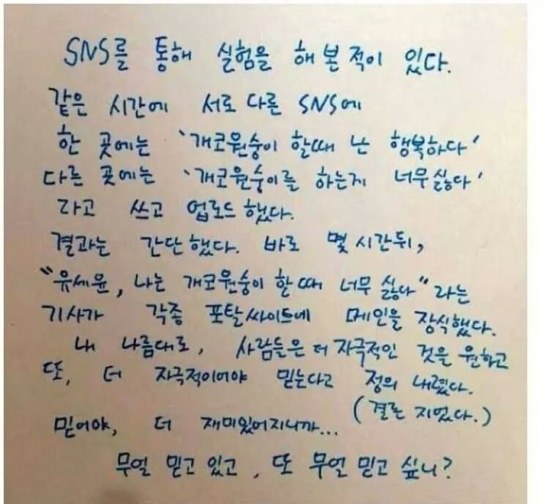 SNS를 통해 실험을 해 본 적이 있다.
같은 시간에 서로 다른 SNS에
한 곳에는 '개코원숭이 할때 난 행복하다'
다른 곳에는 '개코원숭이를 하는게 너무싫다'
라고 쓰고 업로드했다.
결과는 간단했다. 바로 몇시간뒤,
"유세윤, 나는 개코원숭이 할때 너무 싫다"라는
기사가 각종 포탈싸이트에 메인을 장식했다.
내 나름대로, 사람들은 더 자극적인 것을 원하고
또, 더 자극적이어야 믿는다고 정의 내렸다.
(결론 지었다.)
믿어야, 더 재미있어지니까...
무얼 믿고 있고, 또 무얼 믿고 싶니?